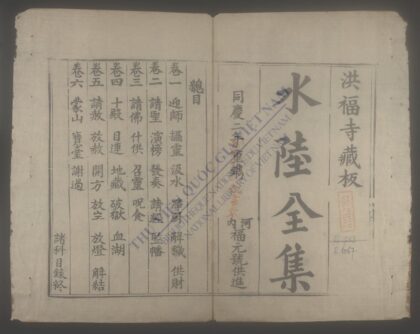 洪福寺藏板
水陸全集
河
內
福元號供進
同慶二年重鐫
總目
卷一 迎師 攝靈 汲水 解穢 供財
卷二 請聖 演榜 發奏 請經 監幡
卷三 請佛 什供 召靈 呪食
卷四 十殿 目連 地藏 破獄 血湖
卷五 請赦 放赦 開方 放生 放燈 解結
卷六 蒙山 寶臺 謝過
諸科目錄終
THƯ VIỆN QUỐC GIA VIỆT NAM
NATIONAL LIBRARY OF VIETNAM